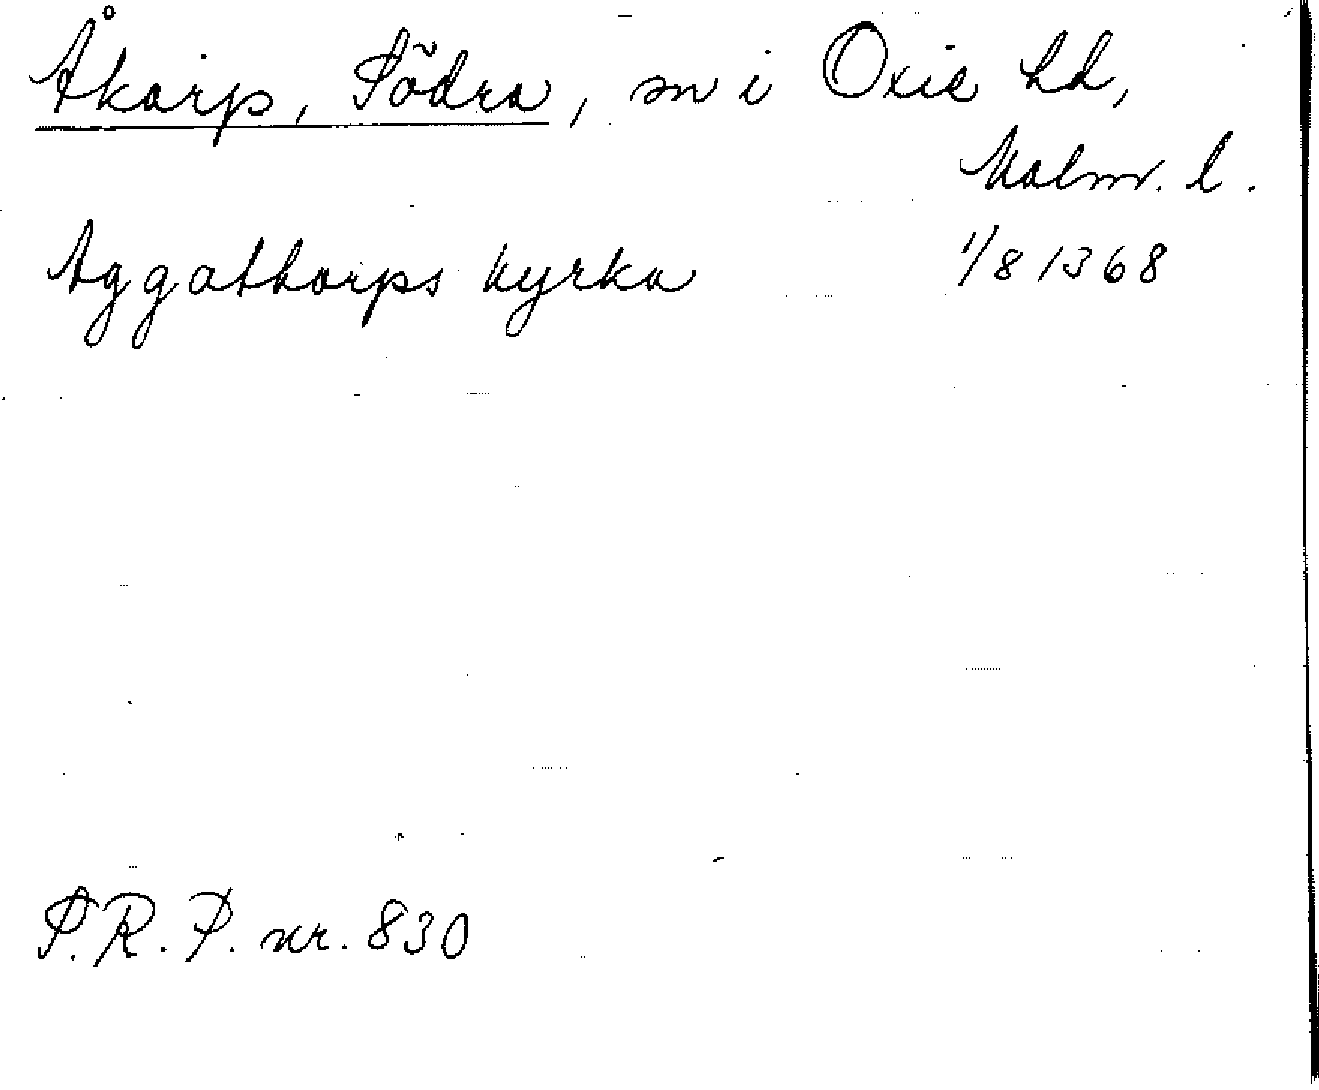 Åkarp, Södra, sn i Oxie hd,
Malm. l.
Aggathorps kyrka 1/8 1368
S.R.P. nr. 830